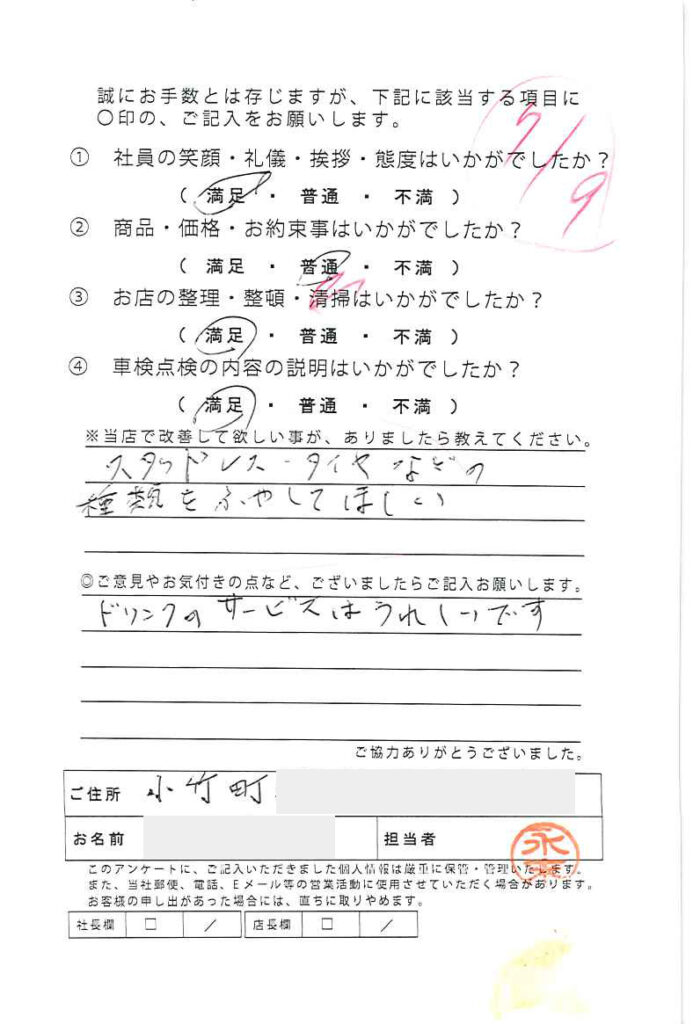 誠にお手数とは存じますが、下記に該当する項目に
〇印の、ご記入をお願いします。
7/9
① 社員の笑顔・礼儀・挨拶・態度はいかがでしたか？
( 満足 ・ 普通 ・ 不満 )
② 商品・価格・お約束事はいかがでしたか？
( 満足 ・ 普通 ・ 不満 )
③ お店の整理・整頓・清掃はいかがでしたか？
( 満足 ・ 普通 ・ 不満 )
④ 車検点検の内容の説明はいかがでしたか？
( 満足 ・ 普通 ・ 不満 )
※当店で改善して欲しい事が、ありましたら教えてください。
スタッドレス・タイヤなどの
種類をふやしてほしい
◎ご意見やお気付きの点など、ございましたらご記入お願いします。
ドリンクのサービスはうれしいです
ご協力ありがとうございました。
ご住所 小竹町
お名前 担当者 永末
このアンケートに、ご記入いただきました個人情報は厳重に保管・管理いたします。
また、当社郵便、電話、Eメール等の営業活動に使用させていただく場合があります。
お客様の申し出があった場合には、直ちに取りやめます。
社長欄 □ / 店長欄 □ /